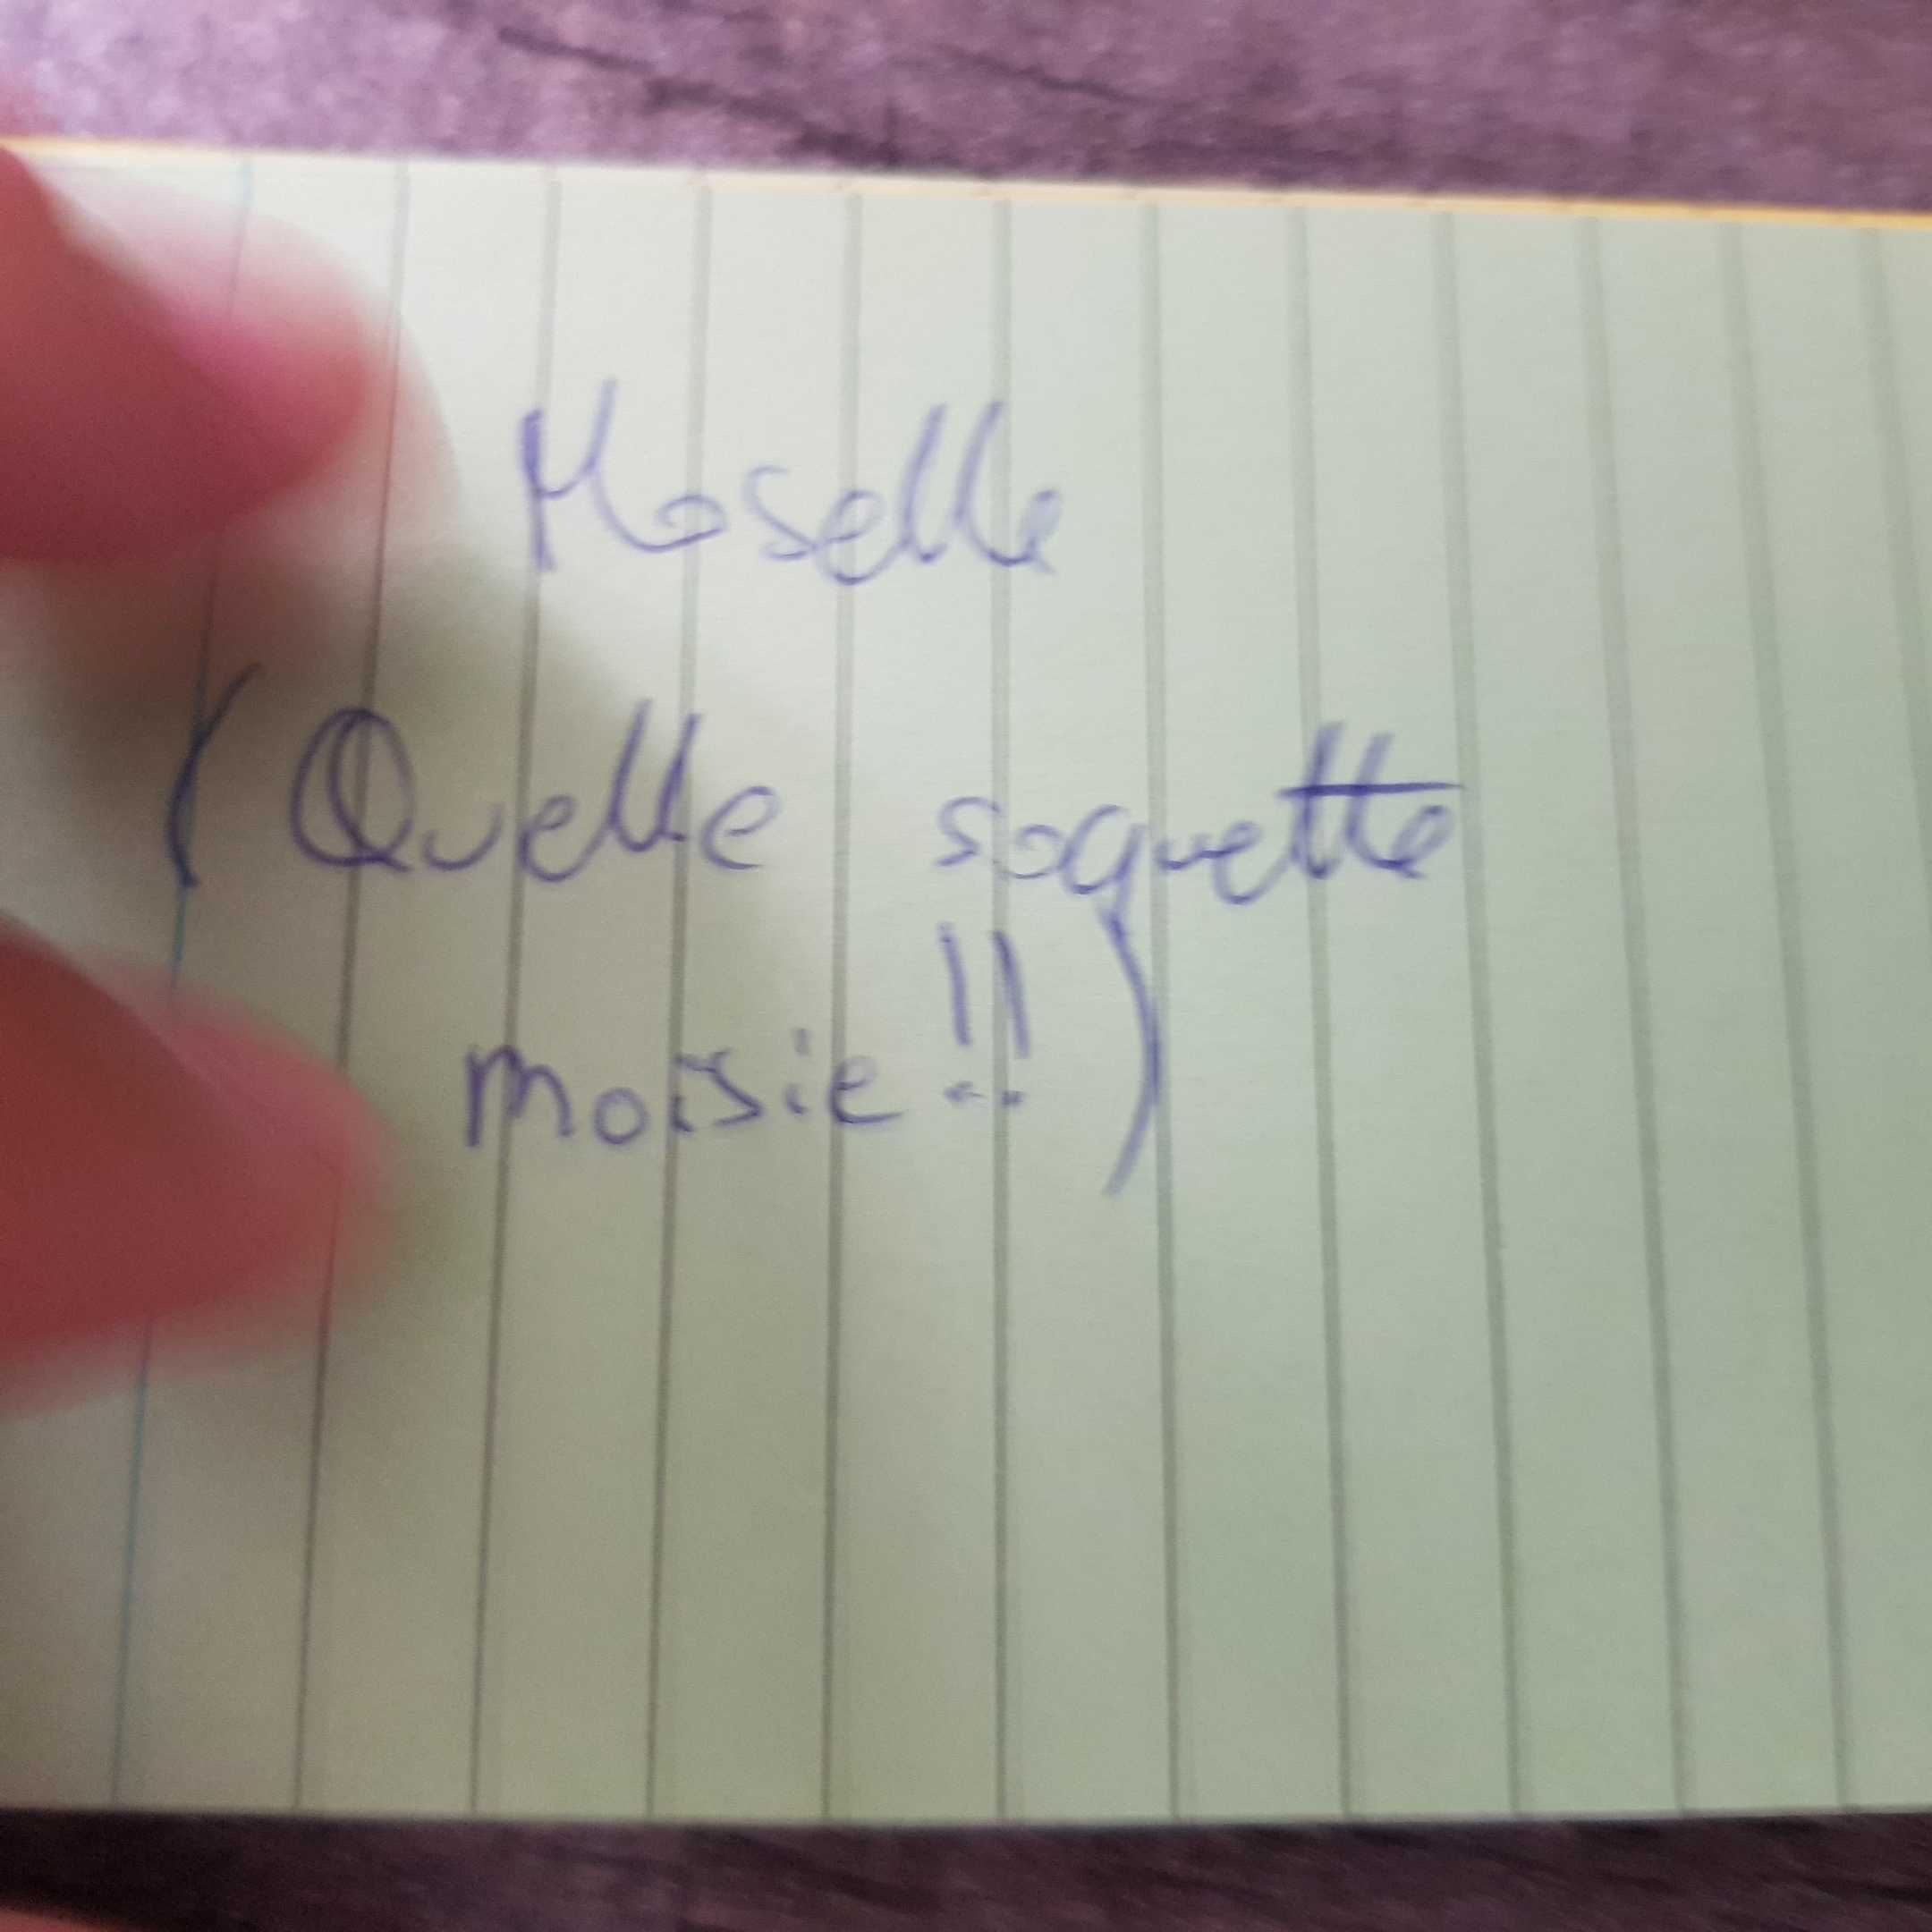 Moselle
(Quelle soquette
moisie!!)